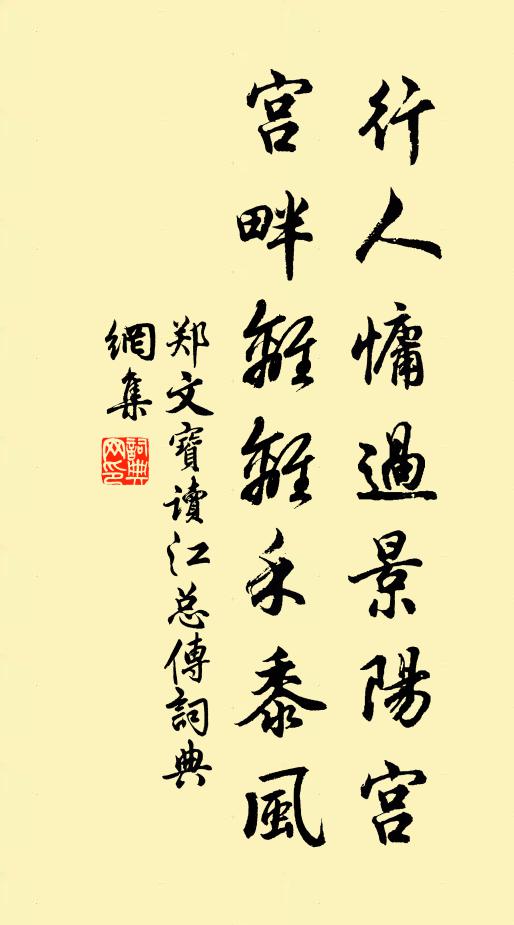 行人慵過景陽宫
宫畔離離禾黍風
郑文寶读江总傳詞典
網集
詞典網印